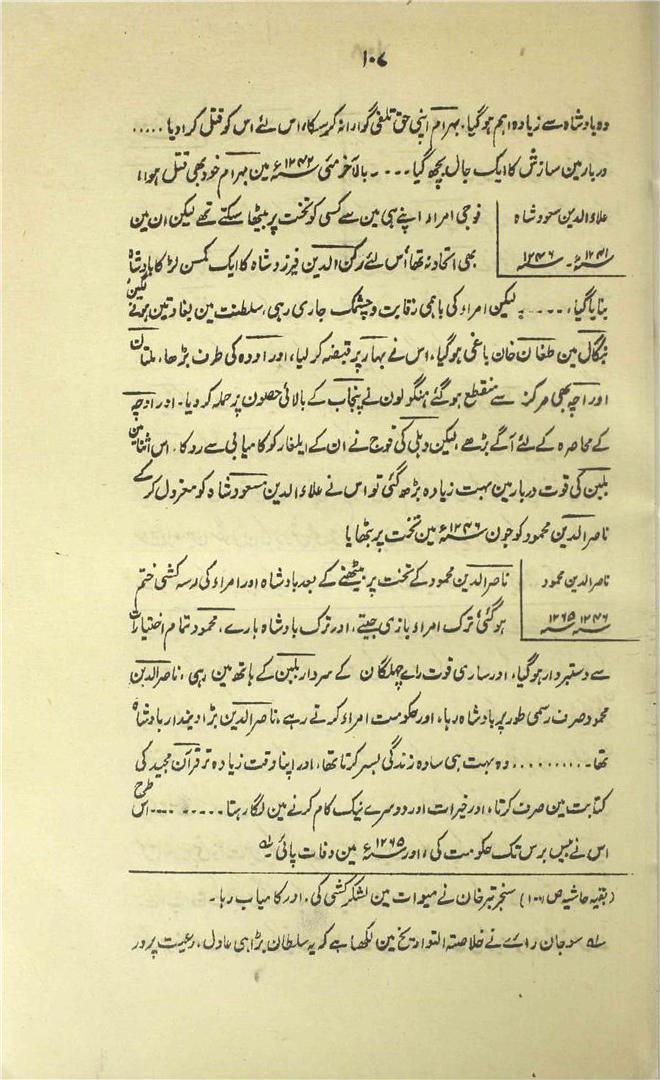 ۱۰۷
وہ بادشاہ سے زیادہ اہم ہو گیا، بہرام اپنی حق تلفی گوارا نہ کر سکا، اس لئے اس کو قتل کرا دیا .....
دربار مین سازش کا ایک جال بچھ گیا .... بالآخر مئی ۱۲۴۲ء مین بہرام خود بھی قتل ہوا،
علاؤ الدین مسعود شاہ
۱۲۴۱ء - ۱۲۴۶ء
فوجی امراء اپنے ہی مین سے کسی کو تخت پر بیٹھا سکتے تھے لیکن ان مین
بھی اتحاد نہ تھا، اس لئے رکن الدین فیروز شاہ کا ایک کمسن لڑکا بادشاہ
بنایا گیا، ..... لیکن امراء کی باہمی رقابت و چشمک جاری رہی، سلطنت مین بغاوتین ہونے لگین
بنگال مین طغان خان باغی ہو گیا، اس نے بہار پر قبضہ کر لیا، اور اودہ کی طرف بڑھا، ملتان
اور اچہ بھی مرکز سے منقطع ہو گئے منگولون نے پنجاب کے بالائی حصون پر حملہ کر دیا۔ اور اوچہ
کے محاصرہ کے لئے آگے بڑھے، لیکن دہلی کی فوج نے ان کے ایلغار کو کامیابی سے روکا، اس اثنا مین
بلبن کی قوت دربار مین بہت زیادہ بڑھ گئی تو اس نے علاء الدین مسعود شاہ کو معزول کر کے
ناصر الدین محمود کو جون ۱۲۴۶ء مین تخت پر بٹھایا
ناصر الدین محمود
۱۲۴۶ ۱۲۶۵
ناصر الدین محمود کے تخت پر بیٹھنے کے بعد بادشاہ اور امراء کی رسہ کشی ختم
ہو گئی، ترک امراء بازی جیتے، اور ترک بادشاہ ہارے، محمود تمام اختیارات
سے دستبردار ہو گیا، اور ساری قوت امراے چہلگان کے سردار بلبن کے ہاتھ مین رہی، ناصر الدین
محمود صرف رسمی طور پر بادشاہ رہا، اور حکومت امراء کرتے رہے، ناصر الدین بڑا دیندار بادشاہ
تھا۔ .......... وہ بہت ہی سادہ زندگی بسر کرتا تھا، اور اپنا وقت زیادہ تر قرآن مجید کی
کتابت مین صرف کرتا، اور خیرات اور دوسرے نیک کام کرنے مین لگا رہتا ......... اس طرح
اس نے بیس برس تک حکومت کی، اور ۱۲۶۵ء مین وفات پائی لہ
(بقیہ حاشیہ ص ۱۰۶) سنجر تبر خان نے میوات مین لشکر کشی کی، اور کامیاب رہا۔
لہ سوجان راے نے خلاصۃ التواریخ مین لکھا ہے کہ یہ سلطان بڑا ہی عادل، رعیت پرور